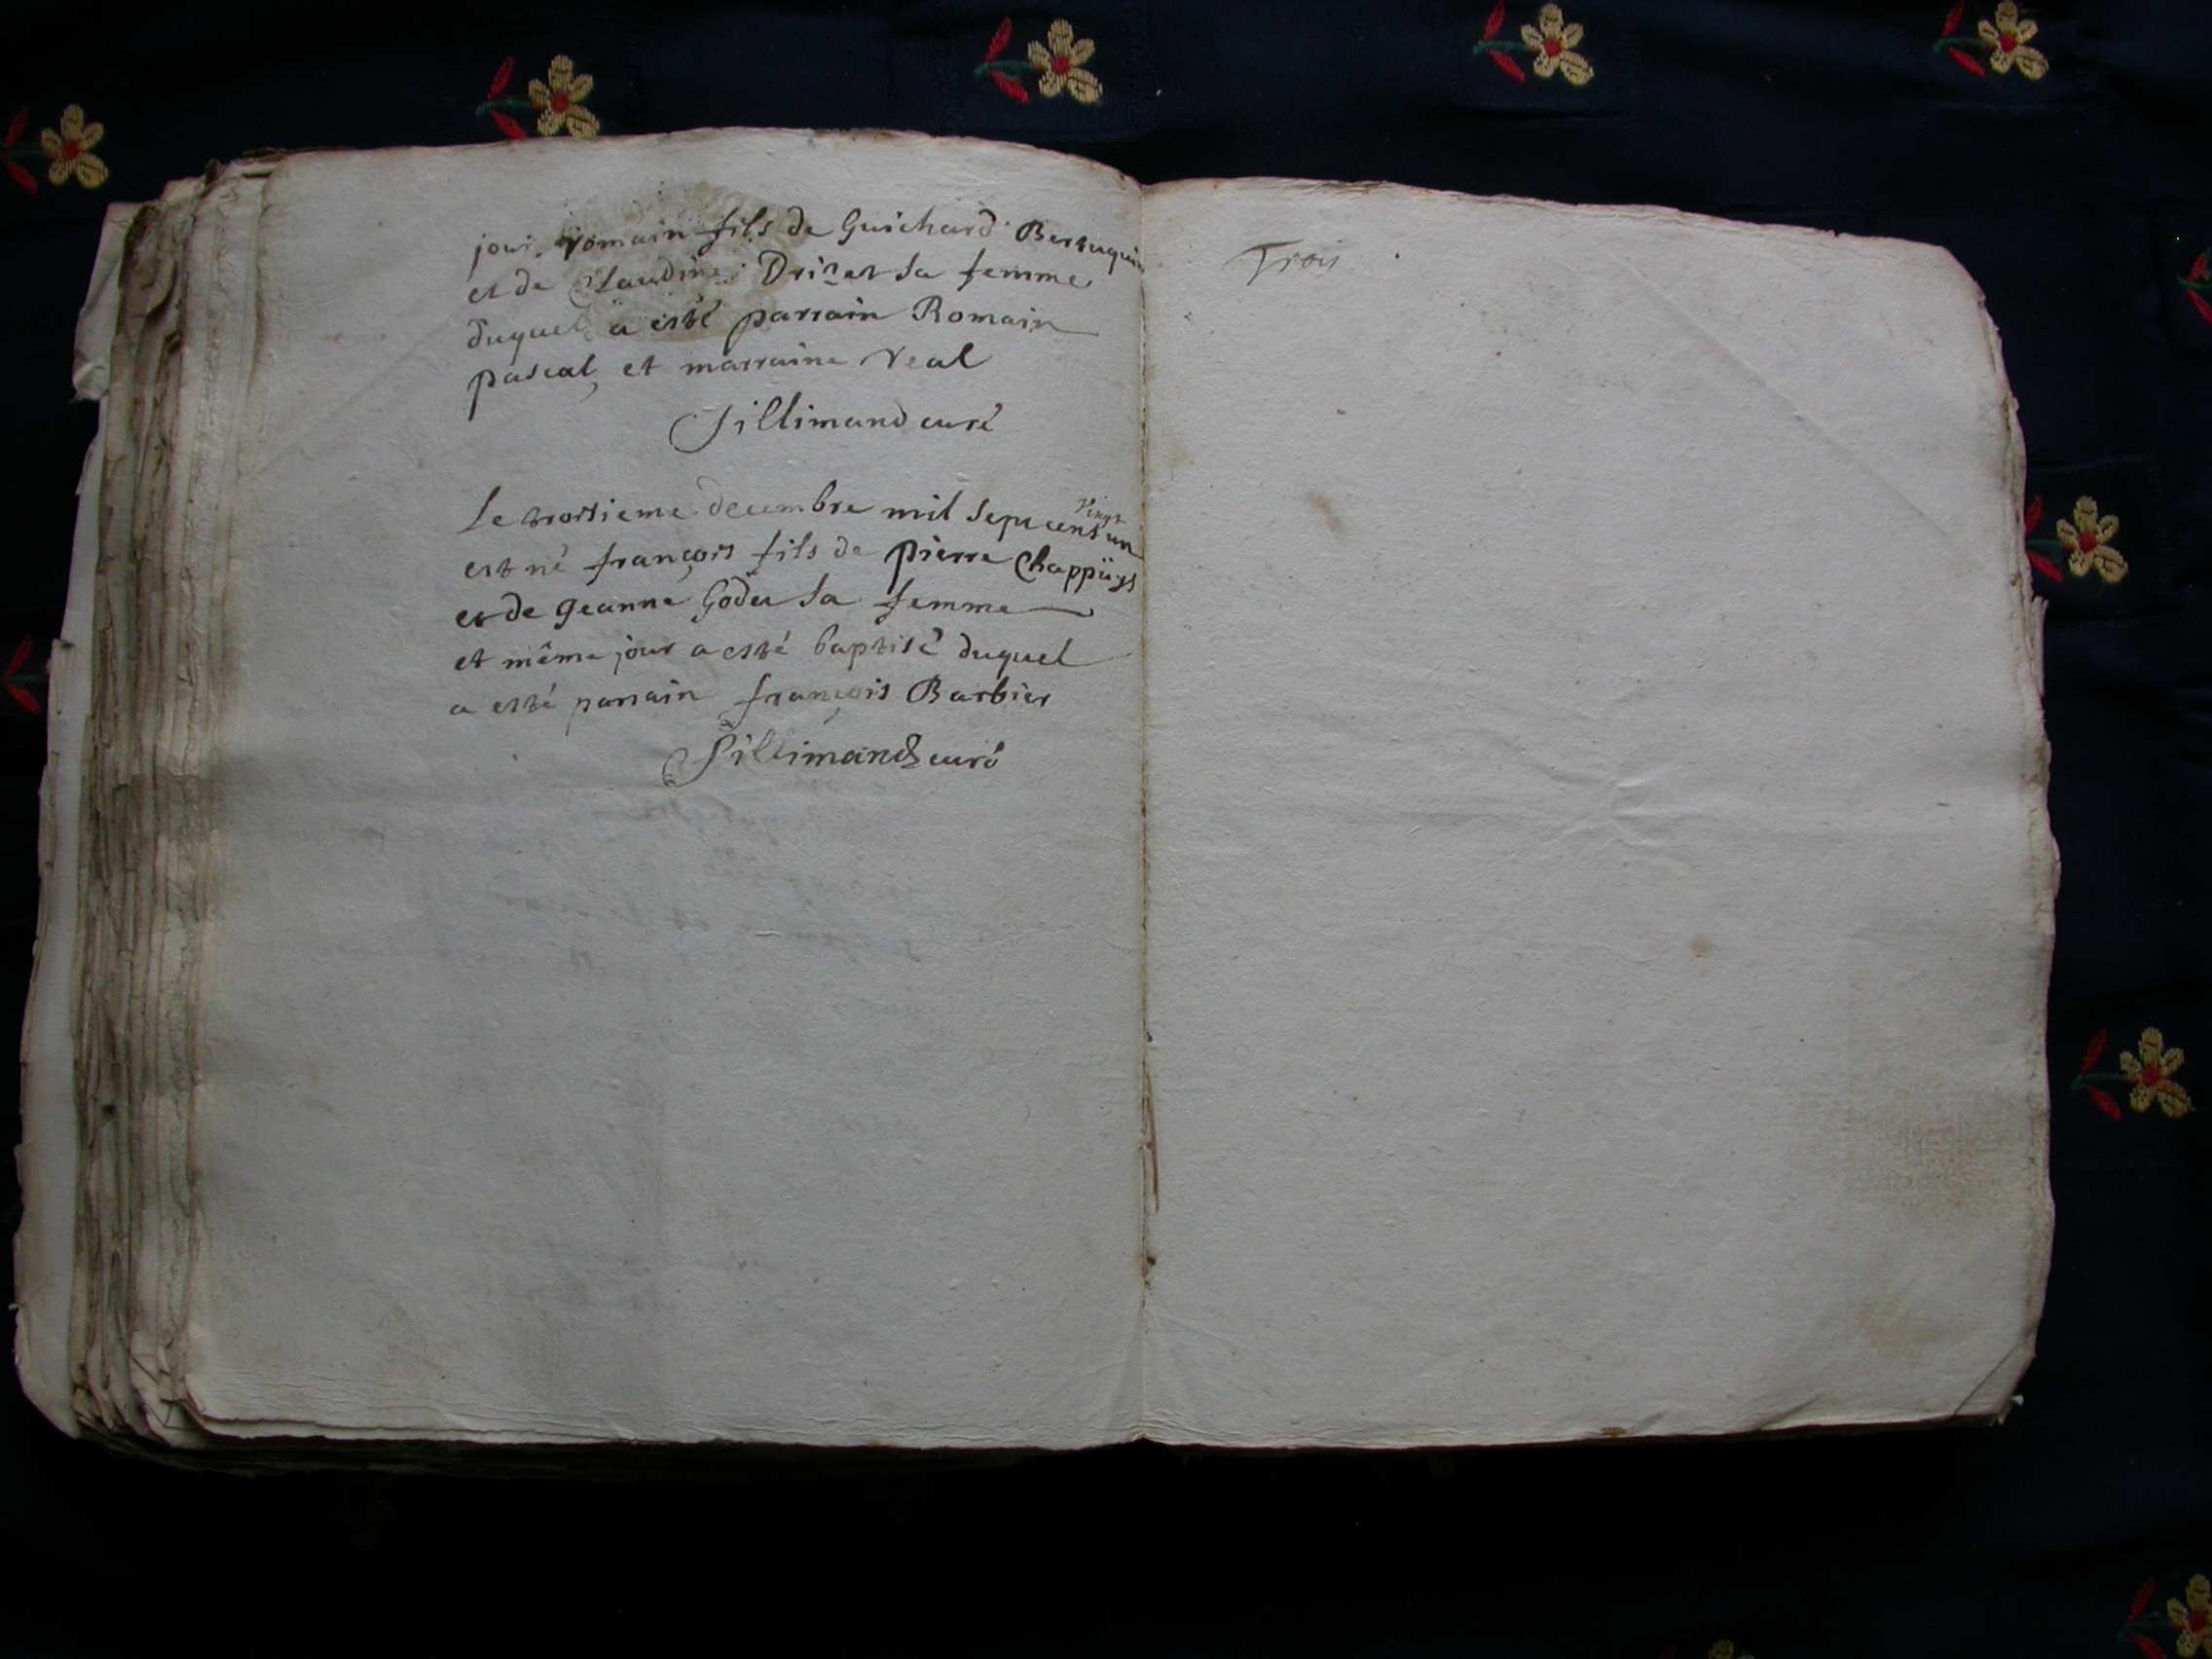 jour, romain fils de Guichard Bertuquin
et de Claudine Drizet sa femme
duquel a esté parrain Romain
pascal, et marraine Real
Sillimand curé
Le troisieme decembre mil sept cens vingt un
est né françois fils de pierre Chappüys
et de Jeanne Godet sa femme
et même jour a esté baptisé duquel
a esté parrain françois Barbier
Sillimand curé
Trois